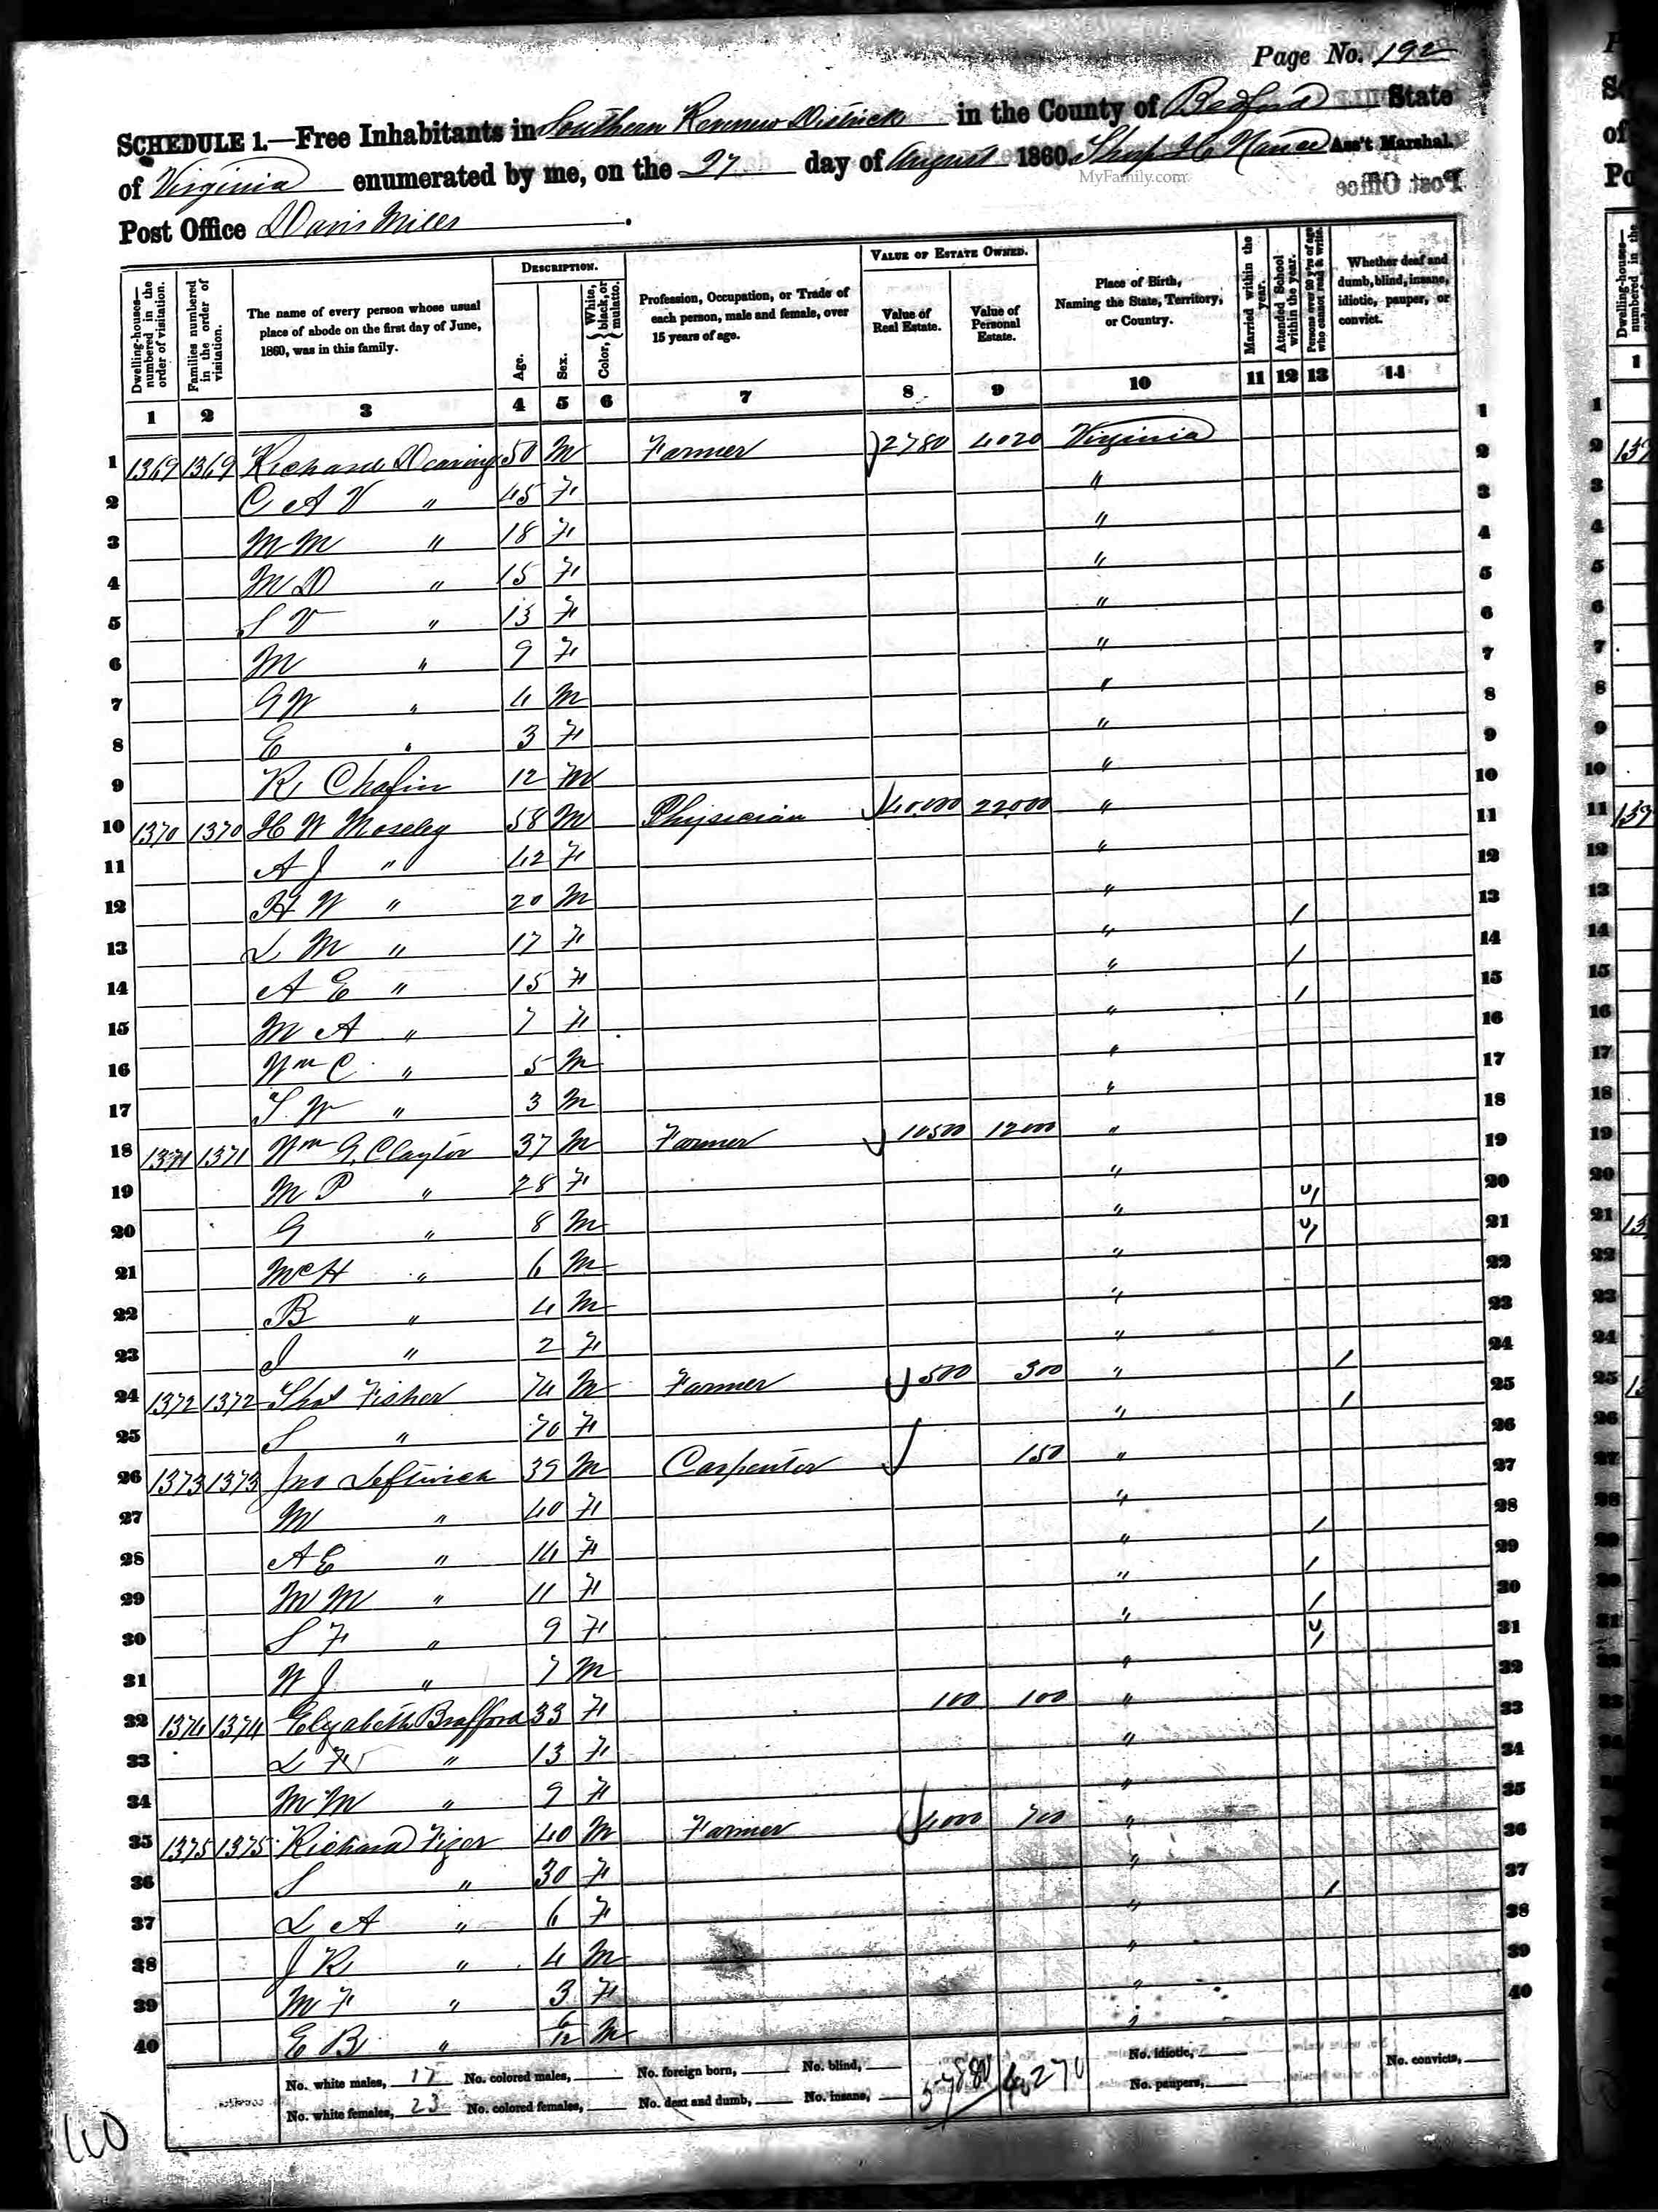 Page No. 192
SCHEDULE 1.—Free Inhabitants in Southern Revenew District in the County of Bedford State
of Virginia enumerated by me, on the 27 day of August 1860. Thos H Nance Ass't Marshal.
MyFamily.com
Post Office Davis Mills.
Dwelling-houses—numbered in the order of visitation.
Families numbered in the order of visitation.
The name of every person whose usual place of abode on the first day of June, 1860, was in this family.
DESCRIPTION.
Age.
Sex.
Color, White, black, or mulatto.
Profession, Occupation, or Trade of each person, male and female, over 15 years of age.
VALUE OF ESTATE OWNED.
Value of Real Estate.
Value of Personal Estate.
Place of Birth, Naming the State, Territory, or Country.
Married within the year.
Attended School within the year.
Persons over 20 y'rs of age who cannot read & write.
Whether deaf and dumb, blind, insane, idiotic, pauper, or convict.
1 2 3 4 5 6 7 8 9 10 11 12 13 14
1 1369 1369 Richard Dearing 50 M Farmer 2780 4020 Virginia
2 C A V " 45 F "
3 M M " 18 F "
4 M D " 15 F "
5 S V " 13 F "
6 M " 9 F "
7 G W " 4 M "
8 E " 3 F "
9 R Chafin 12 M "
10 1370 1370 H W Moseley 58 M Physician 40,000 22,000 "
11 A J " 42 F "
12 H W " 20 M "
13 L M " 17 F " /
14 A E " 15 F " /
15 M A " 7 F " /
16 Wm C " 5 M "
17 S W " 3 M "
18 1371 1371 Wm G. Claytor 37 M Farmer 10500 12000 "
19 M P " 28 F "
20 G " 8 M " /
21 McH " 6 M " /
22 B " 4 M "
23 S " 2 F "
24 1372 1372 Thos Fisher 74 M Farmer 500 300 " /
25 S " 70 F " /
26 1373 1373 Jno Leftwich 39 M Carpenter 150 "
27 M " 40 F "
28 A E " 14 F " /
29 M M " 11 F " /
30 S F " 9 F " /
31 W J " 7 M " /
32 1374 1374 Elizabeth Brafford 33 F 100 100 "
33 L F " 13 F "
34 M M " 9 F "
35 1375 1375 Richard Fizer 40 M Farmer 4000 700 "
36 S " 30 F "
37 L A " 6 F " /
38 J R " 4 M "
39 M F " 3 F "
40 E B " 6/12 M "
No. white males, 17 No. colored males, No. foreign born, No. blind, No. idiotic, No. convicts,
No. white females, 23 No. colored females, No. deaf and dumb, No. insane, 57880 40270 No. paupers,